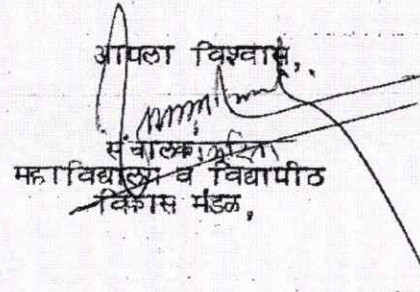 आपला विश्वासू,
संचालक, करिता
महाविद्यालय व विद्यापीठ
विकास मंडळ,